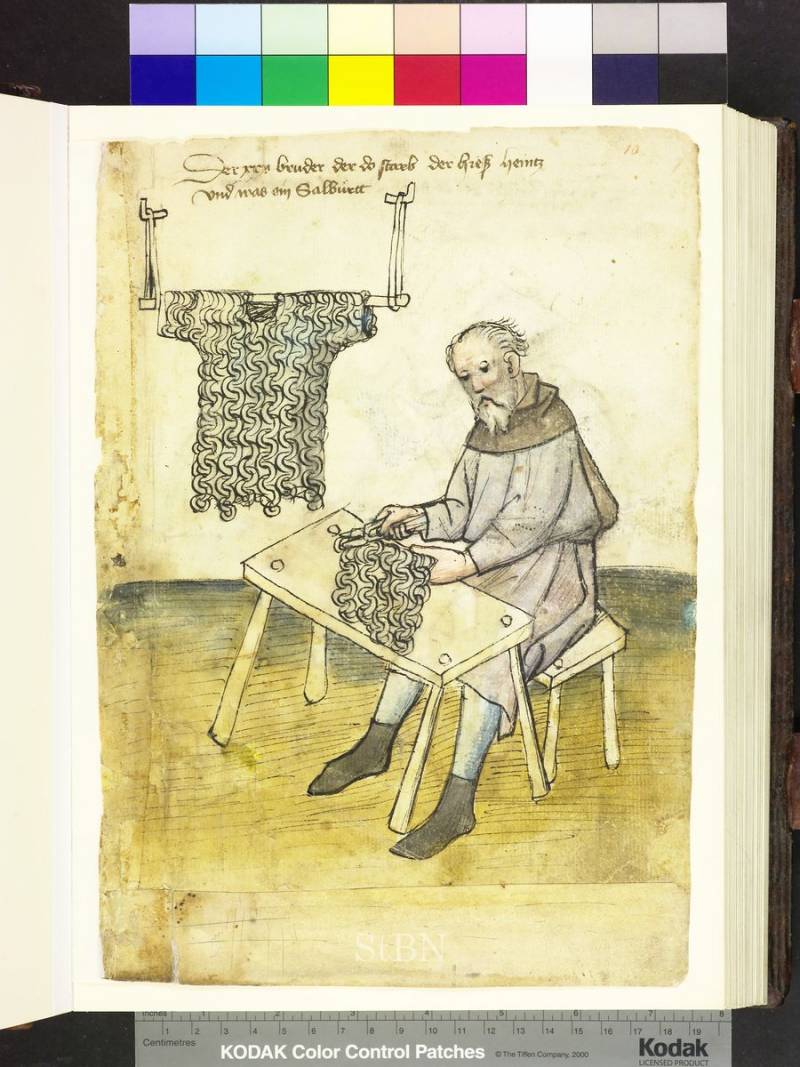 10
Der bruder der do starb der hieß heintz
vnd was ein Salbürtt
StBN
Inches 1 2 3 4 5 6 7 8
1 2 3 4 5 6 7 8 9 10 11 12 13 14 15 16 17 18 19
Centimetres
KODAK Color Control Patches © The Tiffen Company, 2000 Kodak
LICENSED PRODUCT